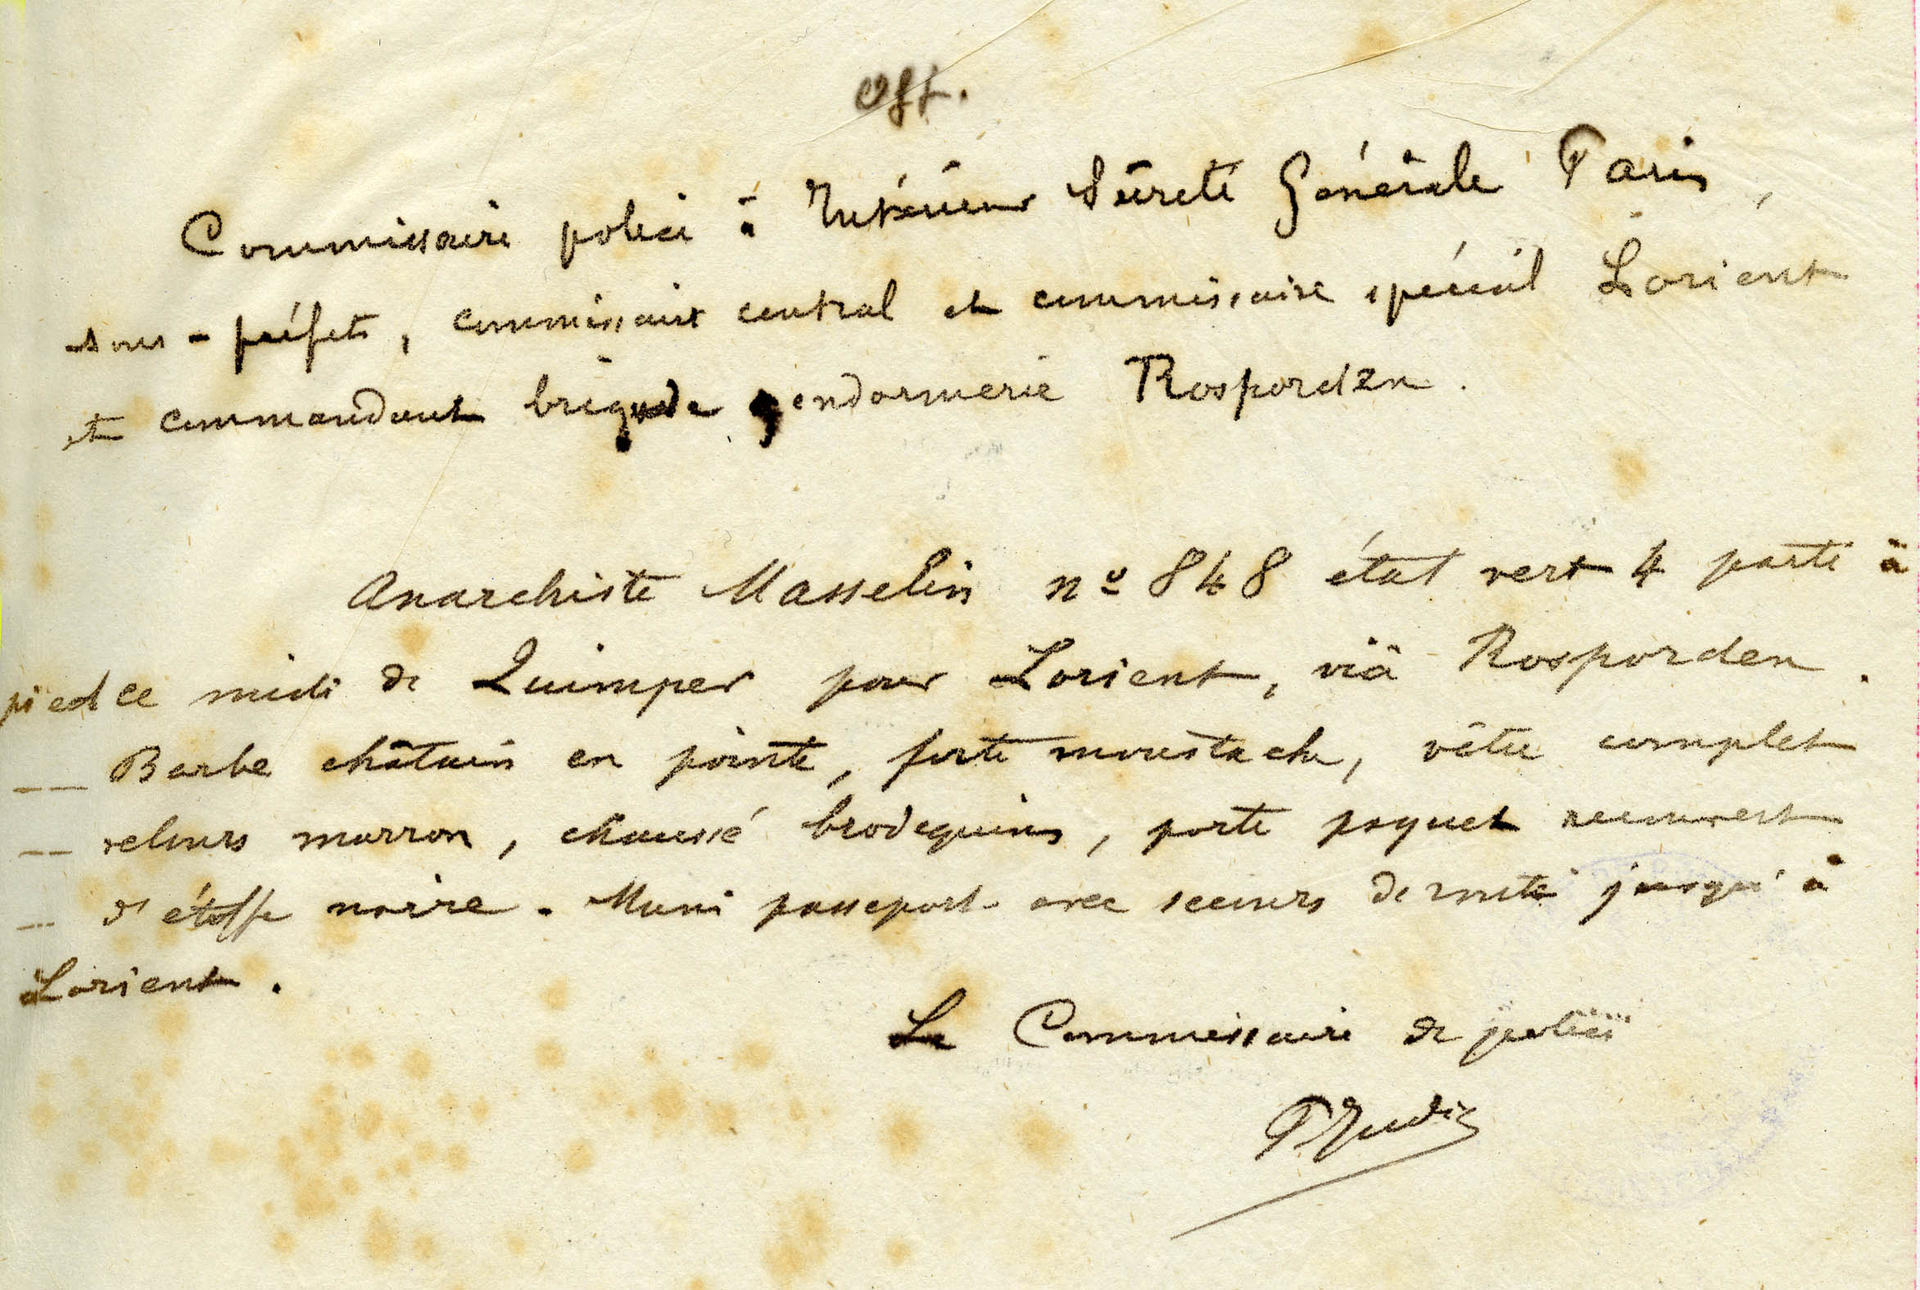 Off.
Commissaire police à Intérieur Sûreté Générale Paris,
sous-préfets, commissaire central et commissaire spécial Lorient
et commandant brigade gendarmerie Rosporden.
Anarchiste Masselin nº 848 état vert 4 parti à
pied ce midi de Quimper pour Lorient, viâ Rosporden.
— Barbe châtain en pointe, forte moustache, vêtu complet
— velours marron, chaussé brodequins, porte paquet recouvert
— d'étoffe noire. Muni passeport avec secours de route jusqu'à
Lorient.
Le Commissaire de police